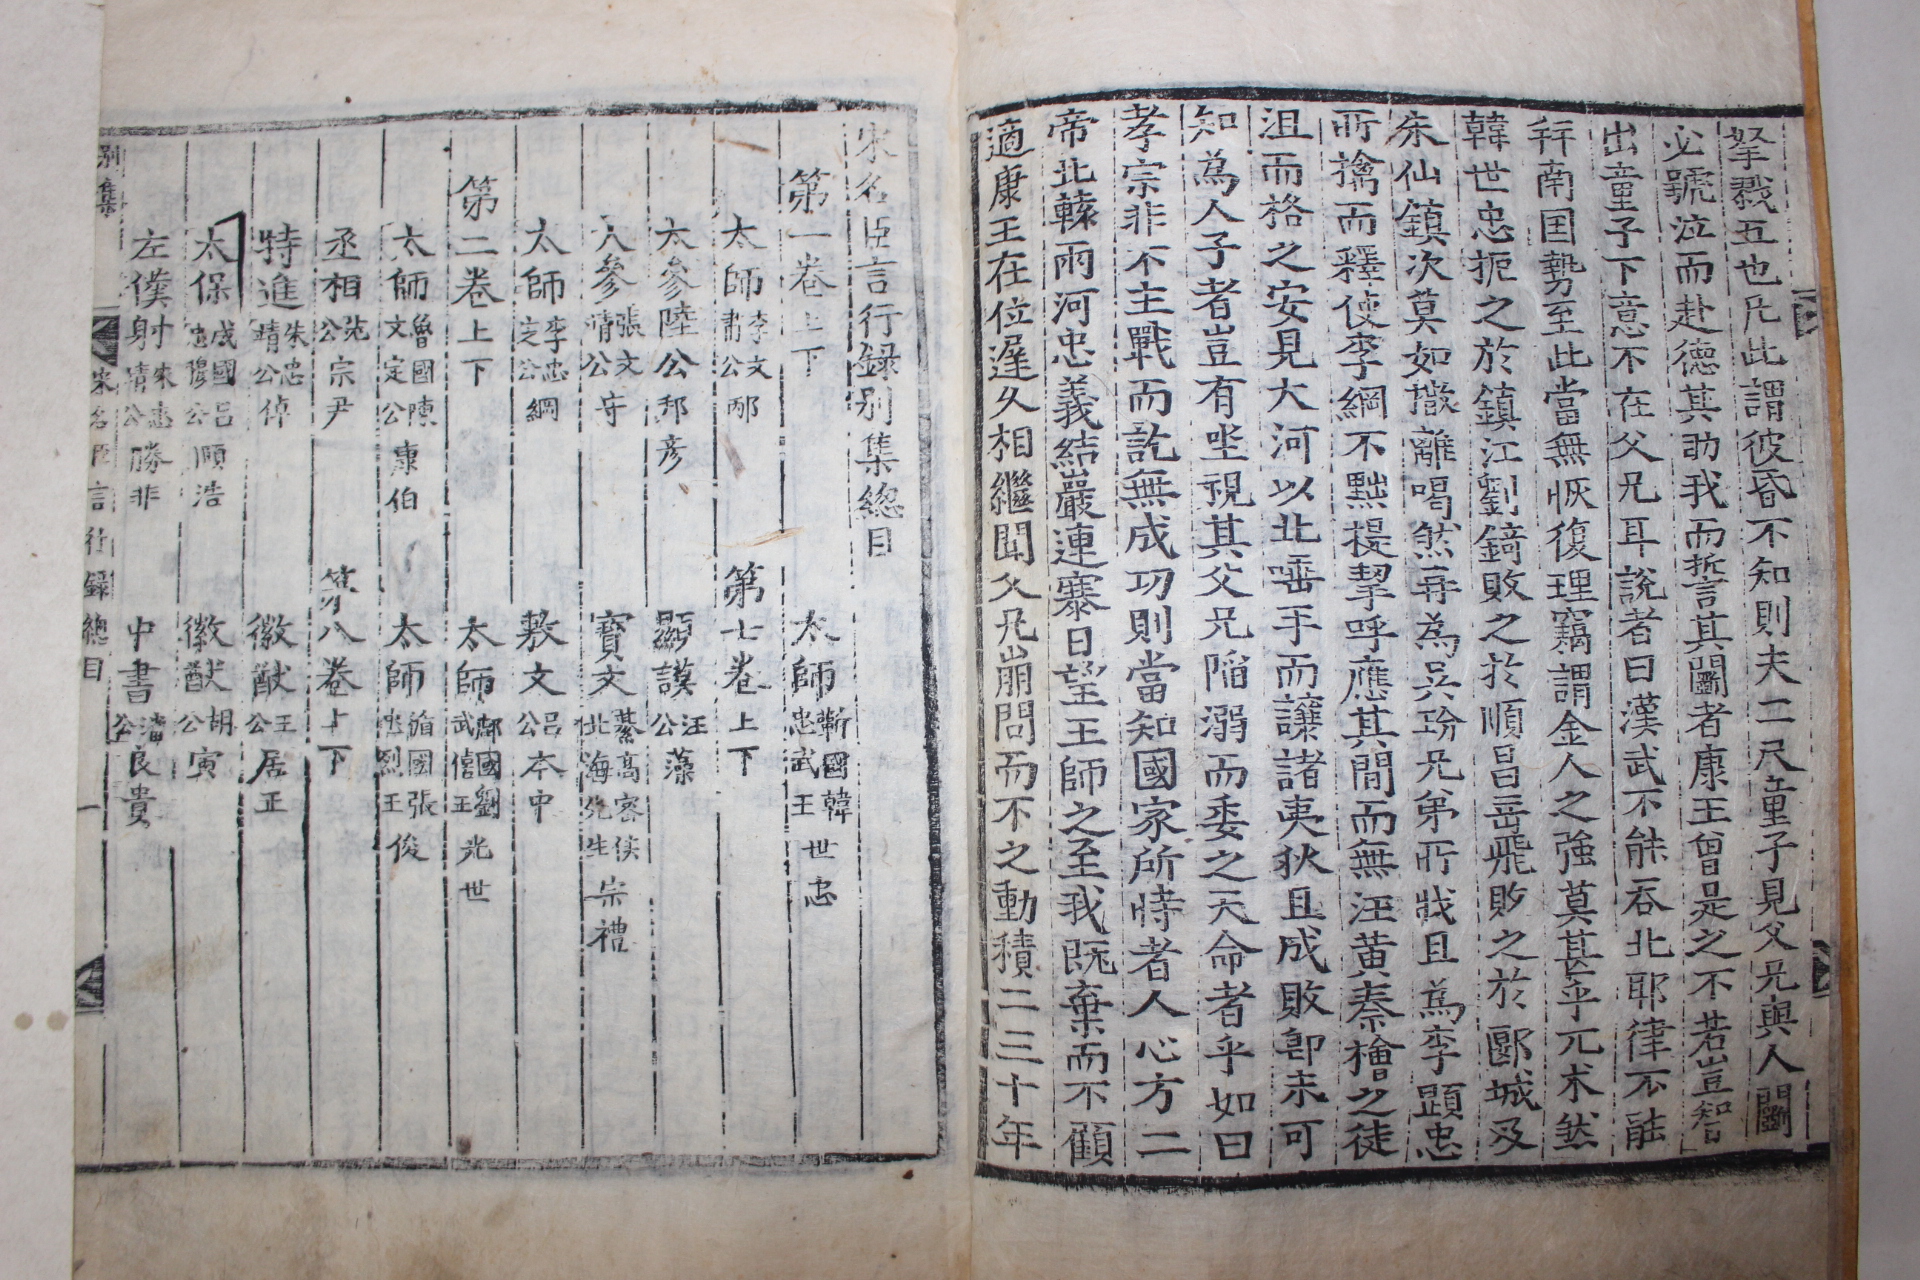 拏戮五也凡此謂彼昏不知則夫二尺童子見父兄與人鬬
必號泣而赴德其助我而拒其鬬者康王曾是之不若豈知
出童子下意不在父兄耳說者曰漢武不能吞北耶律不能
并南国勢至此當無恢復理竊謂金人之強莫甚乎兀术然
韓世忠扼之於鎮江劉錡敗之於順昌岳飛敗之於郾城及
朱仙鎮次莫如撒離喝然再為吳玠兄弟所戕且為李顯忠
所擒而釋使李綱不黜提挈呼應其間而無汪黃秦檜之徒
沮而格之安見大河以北唾手而讓諸夷狄且成敗卽未可
知為人子者豈有坐視其父兄陷溺而委之天命者乎如曰
孝宗非不主戰而訖無成功則當知國家所恃者人心方二
帝北轅兩河忠義結嚴連寨日望王師之至我既棄而不顧
適康王在位遅久相繼聞父兄崩問而不之動積二三十年
宋名臣言行録別集總目
第一卷上下
太師蘄國韓忠武王世忠
太師李文肅公邴
第七卷上下
太參陸公邦彦
顯謨汪公藻
大參張文靖公守
寶文綦高密侯北海先生崇禮
太師李忠定公綱
敷文呂公本中
第二卷上下
太師鄜國劉武僖王光世
太師魯國陳文定公康伯
太師循國張忠烈王俊
丞相范公宗尹
第八卷上下
特進朱忠靖公倬
徽猷王公居正
太保成國呂忠穆公頤浩
徽猷胡公寅
左僕射朱忠靖公勝非
中書潘公良貴
別集
宋名臣言行録總目
一